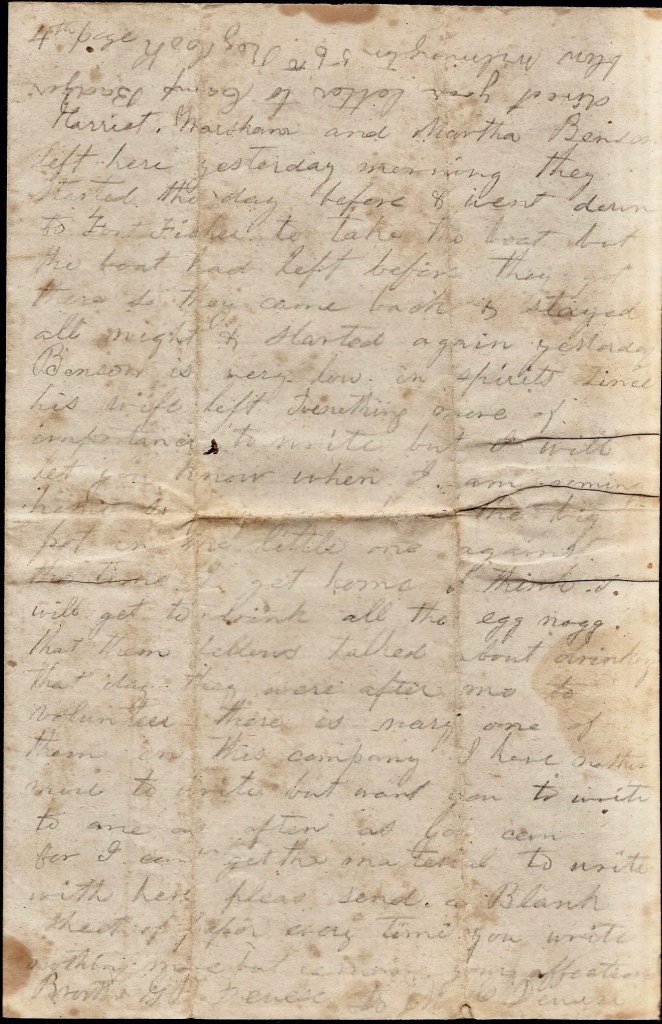 4th page
direct your letter to Camp Badger
Wilmington 56th Reg Co H
Harriet. Marshana and Martha Benson
left here yesterday morning they
started the day before & went down
to Fort Fisher to take the boat but
the boat had left before they got
there so they came back & stayed
all night & started again yesterday
Benson is very low in spirits since
his wife left Ive nothing more of
importance to write but I will
let you know when I am coming
home so the big
pot in the little one against
the time I get home I think I
will get to drink all the egg nogg.
that them fellows talked about drinking
that day they were after me to
volunteer there is nary one of
them in this company I have nothing
more to write but want you to write
to me as often as you can
for I can get the material to write
with here pleas send a Blank
sheet of paper every time you write
nothing more but remain your affection
Brother Devese to Devese